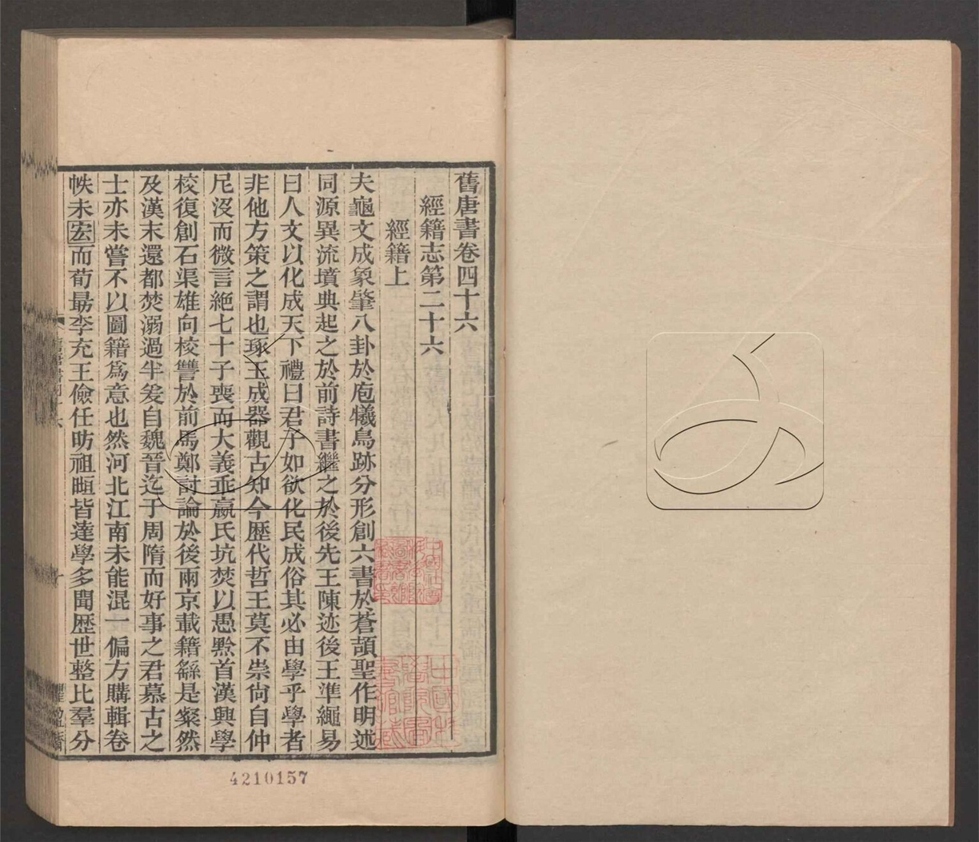 舊唐書卷四十六
經籍志第二十六
經籍上
夫龜文成象肇八卦於庖犧鳥跡分形創六書於蒼頡聖作明述
同源異流墳典起之於前詩書繼之於後先王陳迹後王準繩易
曰人文以化成天下禮曰君子如欲化民成俗其必由學乎學者
非他方策之謂也琢玉成器觀古知今歷代哲王莫不崇尙自仲
尼沒而微言絶七十子喪而大義乖嬴氏坑焚以愚黔首漢興學
校復創石渠雄向校讐於前馬鄭討論於後兩京載籍繇是粲然
及漢末還都焚溺過半爰自魏晉迄于周隋而好事之君慕古之
士亦未嘗不以圖籍爲意也然河北江南未能混一偏方購輯卷
帙未宏而荀勗李充王儉任昉祖暅皆達學多聞歴世整比羣分
4210157